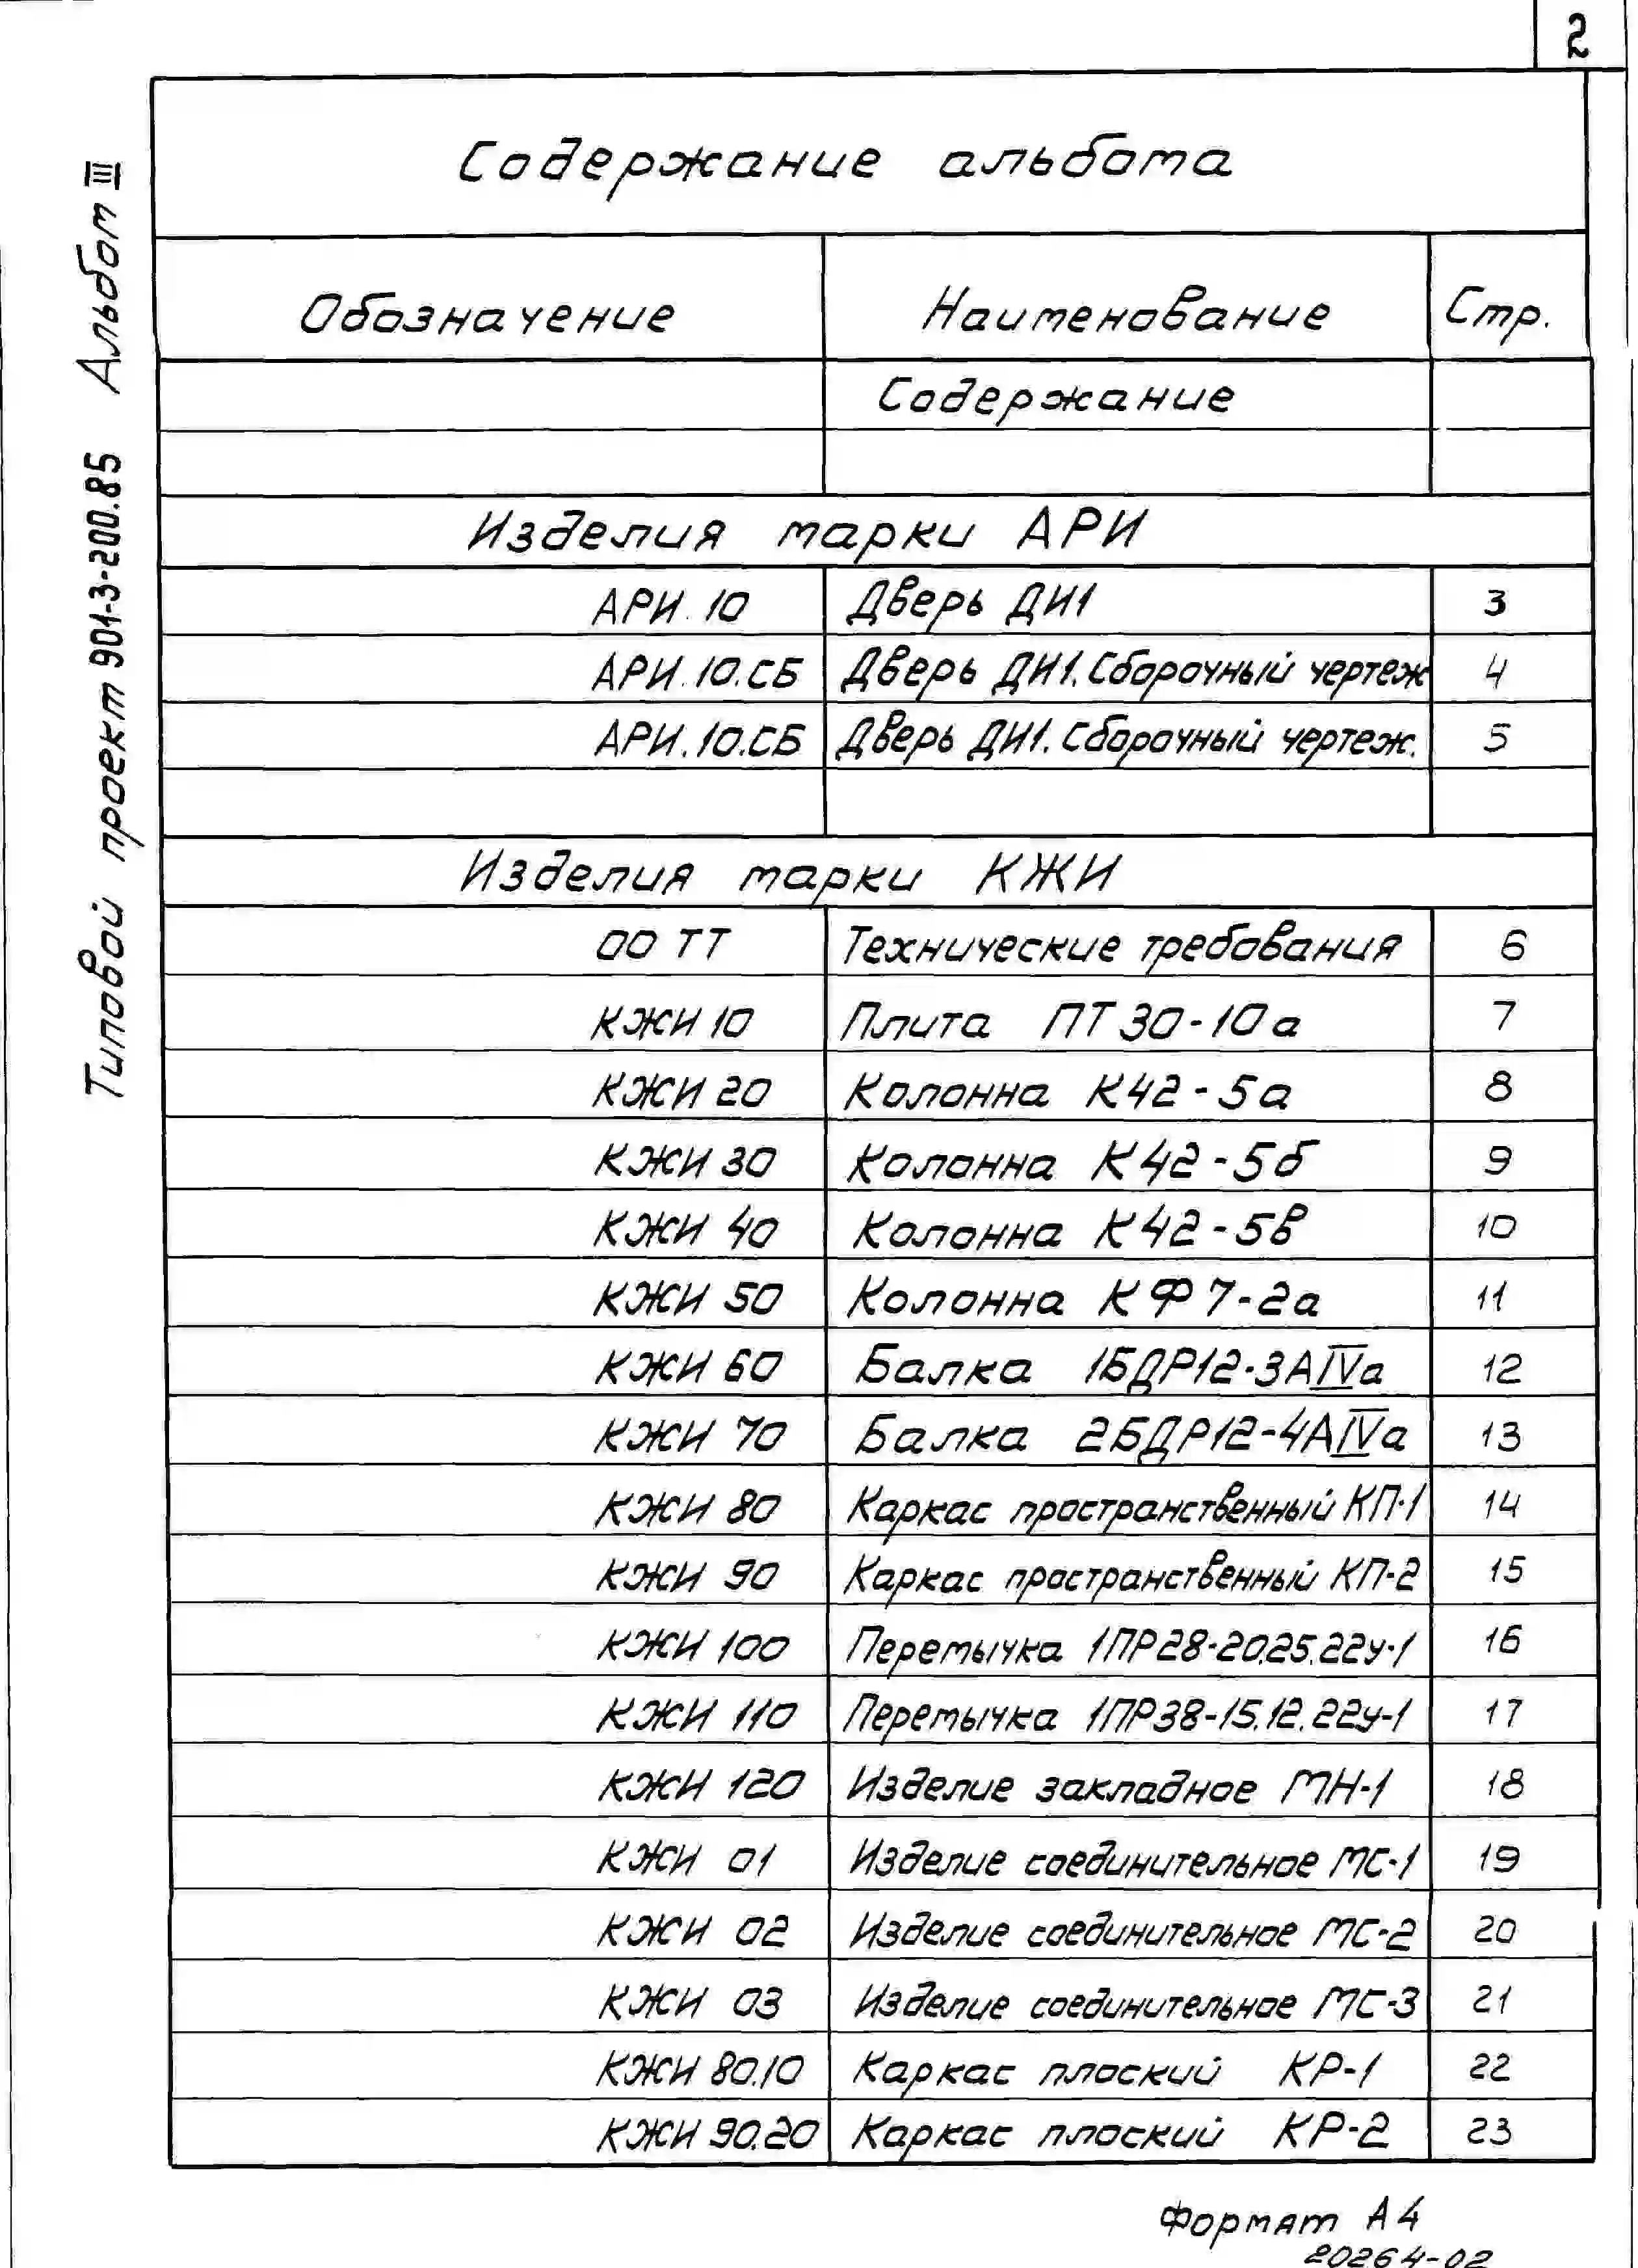 2
Типовой проект 901-3-200.85 Альбом III
Содержание альбома
Обозначение Наименование Стр.
Содержание
Изделия марки АРИ
АРИ.10 Дверь ДИ1 3
АРИ.10.СБ Дверь ДИ1. Сборочный чертеж 4
АРИ.10.СБ Дверь ДИ1. Сборочный чертеж. 5
Изделия марки КЖИ
00 ТТ Технические требования 6
КЖИ 10 Плита ПТ30-10а 7
КЖИ 20 Колонна К42-5а 8
КЖИ 30 Колонна К42-5б 9
КЖИ 40 Колонна К42-5в 10
КЖИ 50 Колонна КФ7-2а 11
КЖИ 60 Балка 1БДР12-3АIVа 12
КЖИ 70 Балка 2БДР12-4АIVа 13
КЖИ 80 Каркас пространственный КП-1 14
КЖИ 90 Каркас пространственный КП-2 15
КЖИ 100 Перемычка 1ПР28-20.25.22у-1 16
КЖИ 110 Перемычка 1ПР38-15.12.22у-1 17
КЖИ 120 Изделие закладное МН-1 18
КЖИ 01 Изделие соединительное МС-1 19
КЖИ 02 Изделие соединительное МС-2 20
КЖИ 03 Изделие соединительное МС-3 21
КЖИ 80.10 Каркас плоский КР-1 22
КЖИ 90.20 Каркас плоский КР-2 23
Формат А4
20264-02